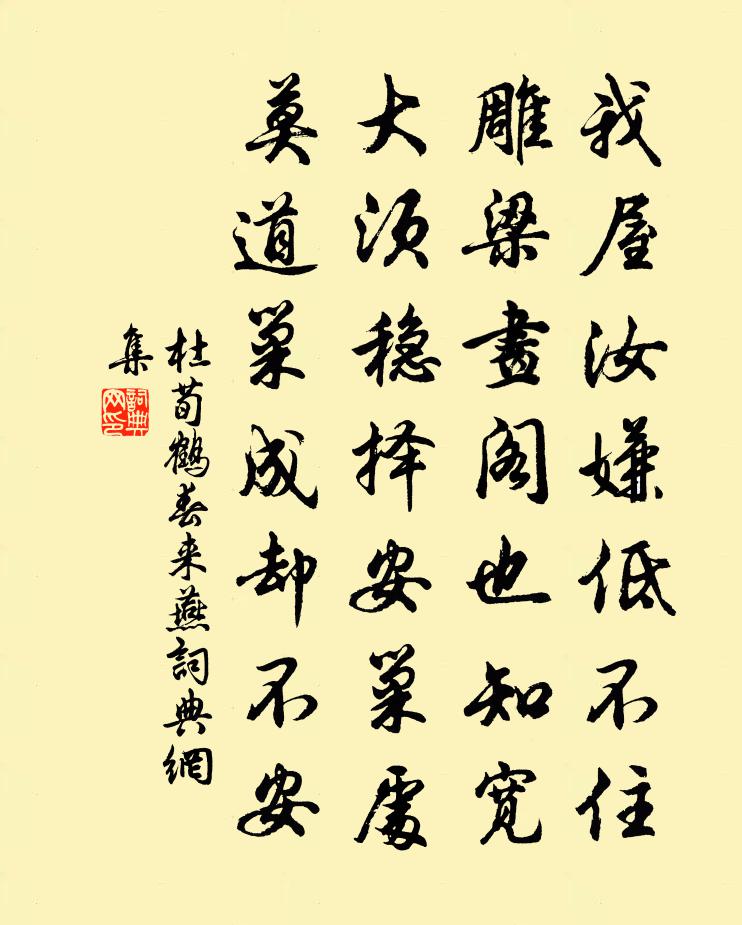 我屋汝嫌低不住
雕梁畫阁也知宽
大须稳择安巢處
莫道巢成却不安
杜荀鹤春来燕詞典網
集
詞典
网印